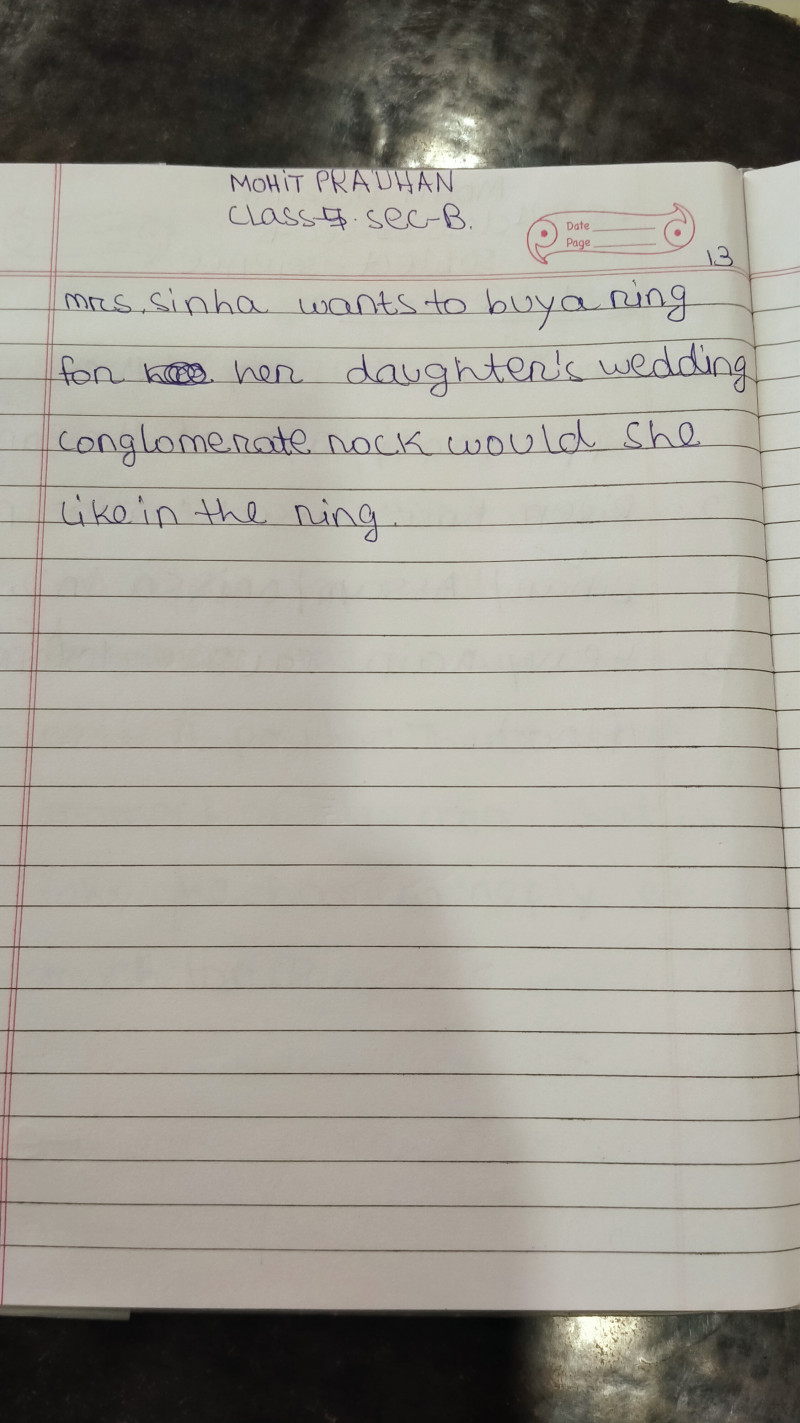 MOHIT PRADHAN
Class-5. sec-B.
Date
Page
13
mrs. Sinha wants to buy a ring
for her daughter's wedding
conglomerate rock would she
like in the ring.